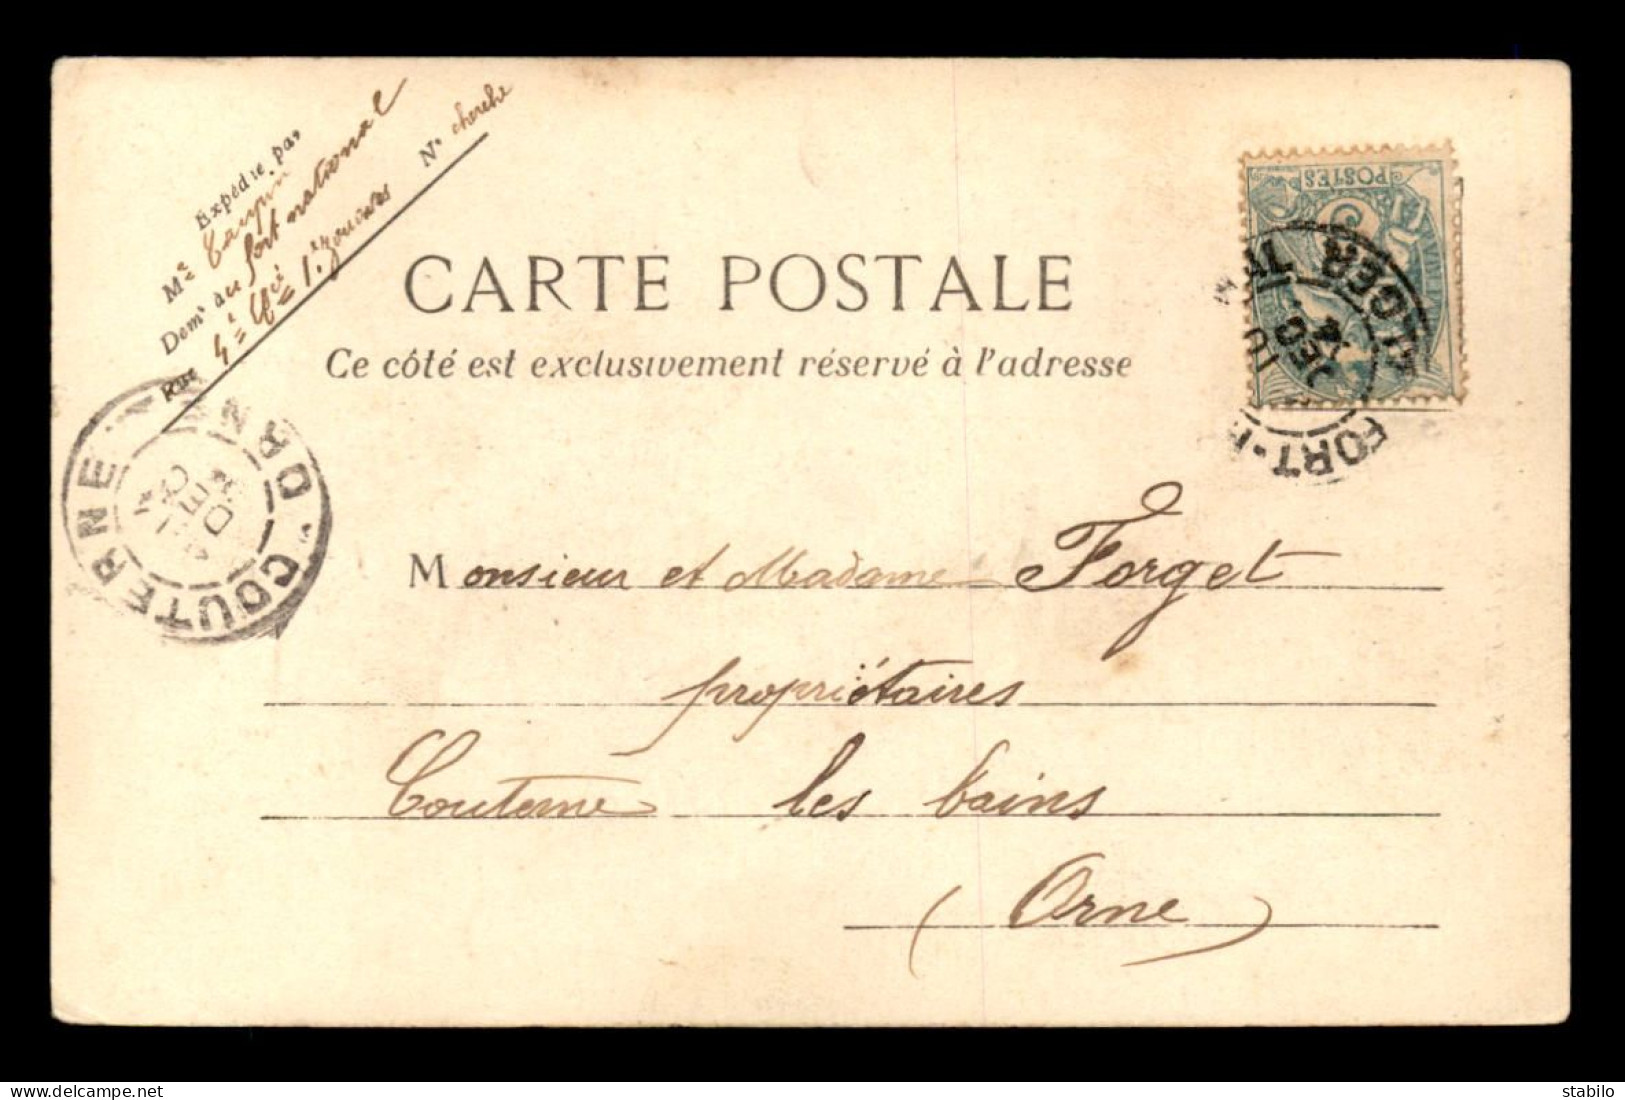 Expédié par
Mr Taupin
Demt à au fort national
Rue 4e Cie 1. Zouaves No cherche
CARTE POSTALE
Ce côté est exclusivement réservé à l'adresse
POSTES
5
FORT-N
AL
ALGER
10
DEC
COUTERNE
ORN
DEC
04
Monsieur et Madame Forget
propriétaires
Couterne les bains
( Orne )
stabilo